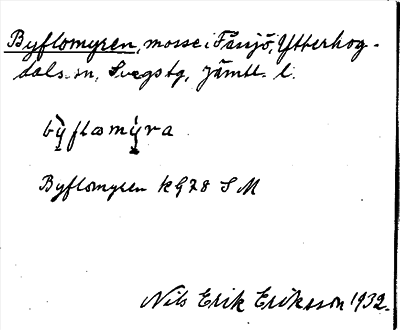 Byflomyren, mosse i Fåsjö, Ytterhog-
dals sn, Svegs tg, Jämtl. l.
bỳflomýra
Byflomyren kg 78 S M
Nils Erik Eriksson 1932.